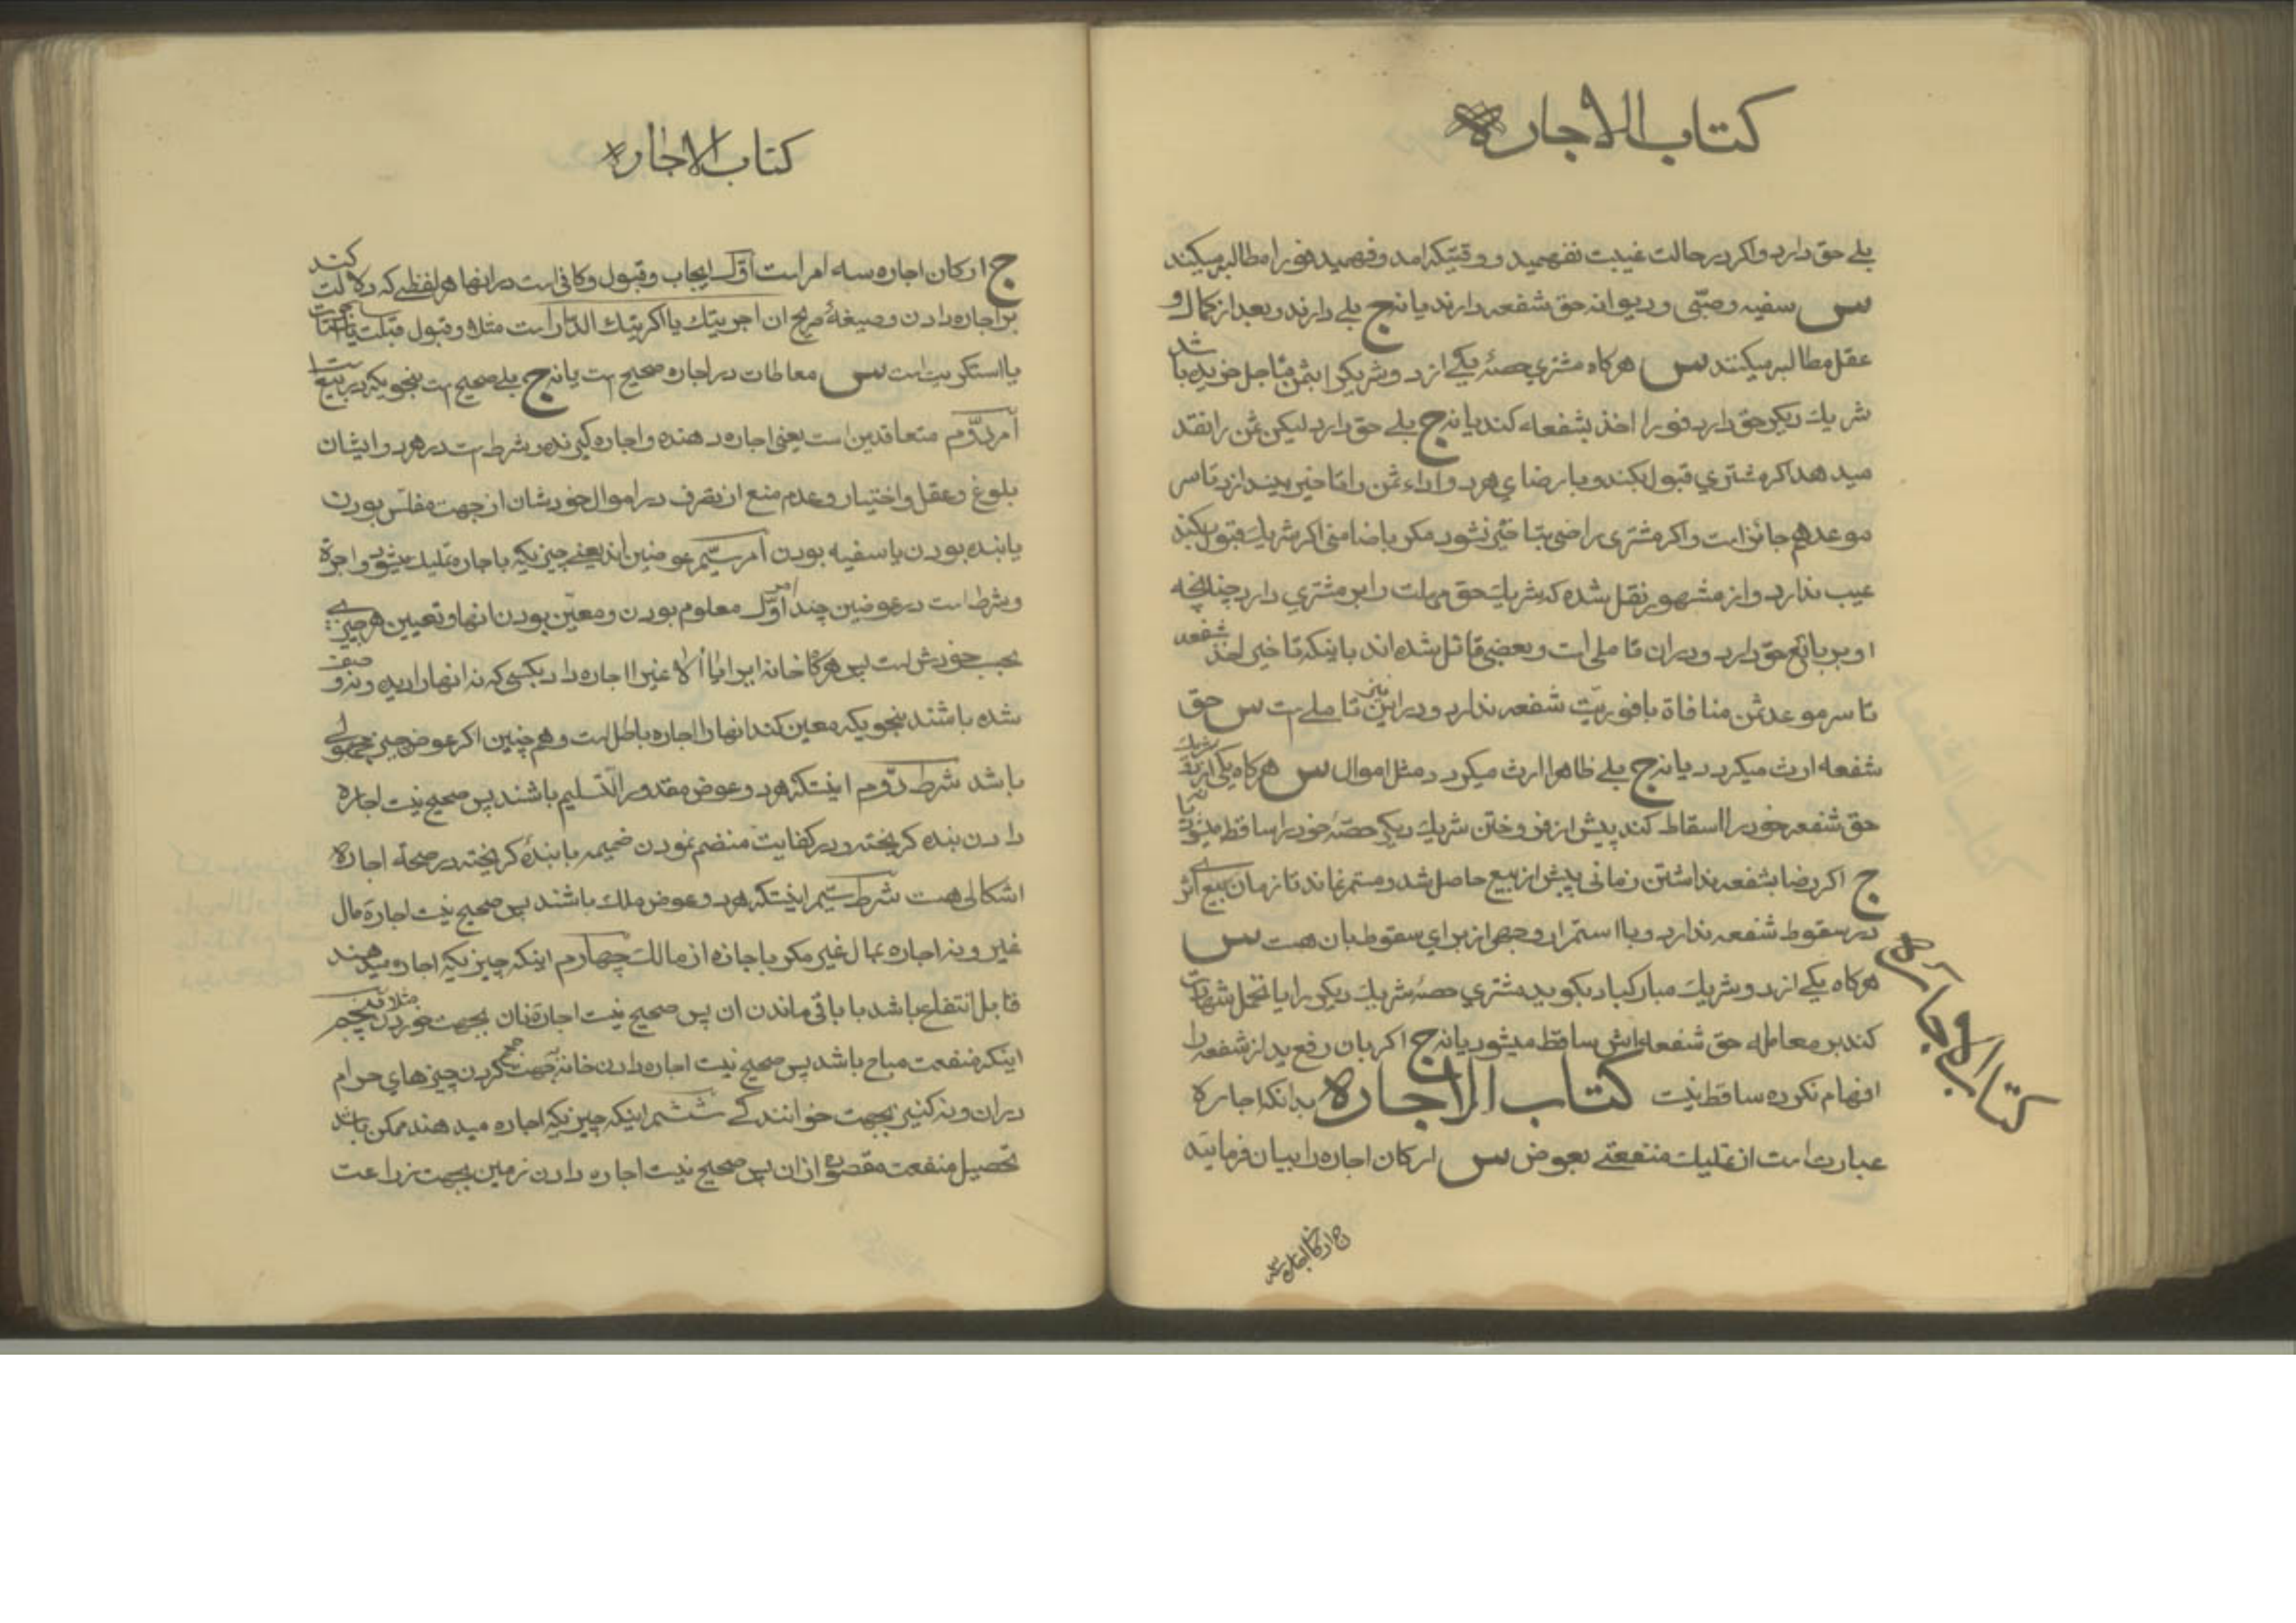 كتاب الاجاره
بلے حق دارد واكر در حالت غيبت نفهميد و وقتيكه امد وفهميد فورا مطالبه ميكند
س سفيه وصبّى و ديوانه حق شفعه دارند يا نه ج بلے دارند و بعد از كمال و
عقل مطالبه ميكنند س هركاه مشتري حصهٔ يكے از دو شريكرا بثمن مؤجل خريده باشد
شريك ديكر حق دارد فورا اخذ بشفعه كند يا نه ج بلے حق دارد ليكن ثمن را نقد
ميدهد اكر مشتري قبول بكند و با رضاي هر دو اداء ثمن را تاخير بيندازد تا سر
موعد هم جائز است و اكر مشترى راضى بتاخير نشود مكر با ضامنى اكر شريك قبول بكند
عيب ندارد و از مشهور نقل شده كه شريك حق مهلت را بر مشتري دارد چنانچه
او بر بائع حق دارد و در ان تاملى است و بعضى قائل شده اند باينكه تاخير اخذ شفعه
تا سر موعد ثمن منافاة با فوريّت شفعه ندارد و در اين نيز تاملے است س حق
شفعه ارث ميكردد يا نه ج بلے ظاهرا ارث ميكردد مثل اموال س هركاه يكى از دو شريك
حق شفعه خود را اسقاط كند پيش از فروختن شريك ديكر حصّهٔ خود را ساقط ميشود يا نه
ج اكر رضا بشفعه نداشتن زمانى پيش از بيع حاصل شد و مستمر نماند تا زمان بيع اثرے
در سقوط شفعه ندارد و با استمرار وجهى از براي سقوط بان هست س
هركاه يكے از دو شريك مباركباد بكويد مشتري حصهٔ شريك ديكر را يا تحمل شهادت
كند بر معامله حق شفعه اش ساقط ميشود يا نه ج اكر بان رفع يد از شفعه را
افهام نكرده ساقط نيست كتاب الاجاره بدانكه اجاره
عبارت است از تمليك منفعتے بعوض س اركان اجاره را بيان فرمائيد
ج اركان اجاره سه
كتاب الاجاره
ج اركان اجاره سه امر است اوّل ايجاب و قبول و كافى است در انها هر لفظے كه دلالت كند
بر اجاره دادن و صيغهٔ صريح ان اجرتك يا اكريتك الدار است مثلا و قبول قبلت يا استاجرت
يا استكريت است س معاطات در اجاره صحيح است يا نه ج بلے صحيح است بنحويكه در بيع است
امر دوّم متعاقدين است يعنى اجاره دهنده و اجاره كيرنده و شرط است در هر دو ايشان
بلوغ و عقل و اختيار و عدم منع از تصرف در اموال خودشان از جهت مفلّس بودن
يا بنده بودن يا سفيه بودن امر سيّم عوضين اند يعنے چيزيكه با جاره تمليك ميشود و اجرة
و شرط است در عوضين چند امر اوّل معلوم بودن و معيّن بودن انها و تعيين هر چيزے
بحسب خودش است پس هركاه خانه را يا الاغيرا اجاره داد بكسى كه نه انها را ديده و نه وصف
شده باشند بنحويكه معين كند انها را اجاره باطل است و هم چنين اكر عوض چيز مجهولى
باشد شرط دوّم اينستكه هر دو عوض مقدور التسليم باشند پس صحيح نيست اجاره
دادن بنده كريخته و در كفايت منضم نمودن ضميمه با بندهٔ كريخته در صحة اجاره
اشكالى هست شرط سيّم اينستكه هر دو عوض ملك باشند پس صحيح نيست اجارهٔ مال
غير و نه اجاره بمال غير مكر با جازه از مالك چهارم اينكه چيزيكه اجاره ميدهند
قابل انتفاع باشد با باقى ماندن ان پس صحيح نيست اجارهٔ نان بجهت خوردن مثلا پنجم
اينكه منفعت مباح باشد پس صحيح نيست اجاره دادن خانه بجهت جمع كردن چيزهاي حرام
در ان و نه كنيز بجهت خوانندكے ششم اينكه چيزيكه اجاره ميدهند ممكن باشد
تحصيل منفعت مقصوده از ان پس صحيح نيست اجاره دادن زمين بجهت زراعت